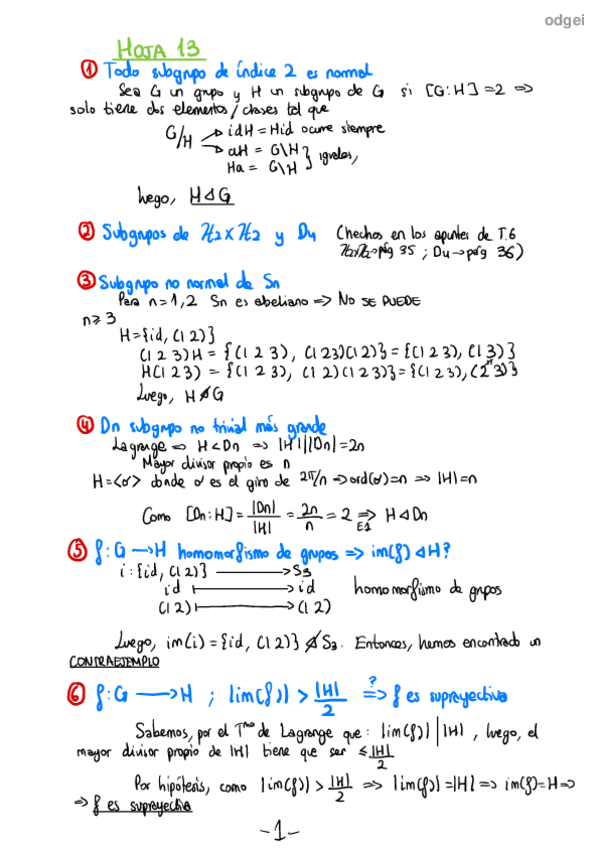 odgei
HOJA 13
① Todo subgrupo de índice 2 es normal
Sea G un grupo y H un subgrupo de G si [G:H]=2 ⇒
solo tiene dos elementos/clases tal que
G/H → idH = Hid ocurre siempre
→ aH = G\H } iguales,
Ha = G\H
luego, H⊲G
② Subgrupos de ℤ2xℤ2 y D4 (hechos en los apuntes de T.6
ℤ2xℤ2→pág 35 ; D4→pág 36)
③ Subgrupo no normal de Sn
Para n=1,2 Sn es abeliano ⇒ NO SE PUEDE
n≥3
H={id, (1 2)}
(1 2 3)H = {(1 2 3), (1 2 3)(1 2)} = {(1 2 3), (1 3)}
H(1 2 3) = {(1 2 3), (1 2)(1 2 3)} = {(1 2 3), (2 3)}
Luego, H⋪G
④ Dn subgrupo no trivial más grande
Lagrange ⇒ H<Dn ⇒ |H| | |Dn|=2n
Mayor divisor propio es n
H=<σ> donde σ es el giro de 2π/n ⇒ord(σ)=n ⇒ |H|=n
Como [Dn:H] = |Dn|/|H| = 2n/n = 2 ⇒ E1 H⊲Dn
⑤ f:G→H homomorfismo de grupos ⇒ im(f)⊲H?
i:{id, (1 2)} → S3
id ↦ id homomorfismo de grupos
(1 2) ↦ (1 2)
Luego, im(i)={id, (1 2)} ⋪S3. Entonces, hemos encontrado un
CONTRAEJEMPLO
⑥ f:G→H ; |im(f)| > |H|/2 ?⇒ f es suprayectiva
Sabemos, por el Tma de Lagrange que: |im(f)| | |H|, luego, el
mayor divisor propio de |H| tiene que ser ≤ |H|/2
Por hipótesis, como |im(f)| > |H|/2 ⇒ |im(f)|=|H| ⇒ im(f)=H⇒
⇒ f es suprayectiva
-1-